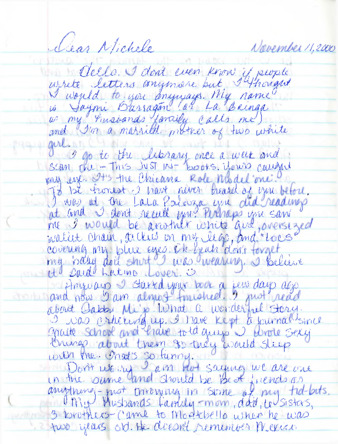 Dear Michele
November 11, 2000
Hello. I don't even know if people
write letters anymore but I thought
I would to you anyways. My name
is Jaymi (or La Gringa
as my husbands family calls me)
and I'm a married mother of two white
girl.
I go to the library once a week and
scan the - This Just In - books. Yours caught
my eye. It's the Chicana Role Model one.
To be honest I have never heard of you before.
I was at the LaLa Palooza you did readings
at and I don't recall you. Perhaps you saw
me I would be another white girl, oversized
wallet chain, tattoo on my leg, and "locs"
covering my blue eyes. Oh yeah don't forget
my baby doll shirt I was wearing. I believe
it said Latino Lover.
Anyways I started your book a few days ago
and now I am almost finished. I just read
about What a wonderful story.
I was cracking up. I have kept a journal since
grade school and have told guys I wrote sexy
things about them so they would sleep
with me. That's so funny.
Dont worry I am not saying we are one
in the same and should be best friends or
anything - just throwing in some of my tid-bits.
My Husbands family - mom, dad, sisters,
3 brothers - came to Montebello when he was
two years old. He doesn't remember Mexico.